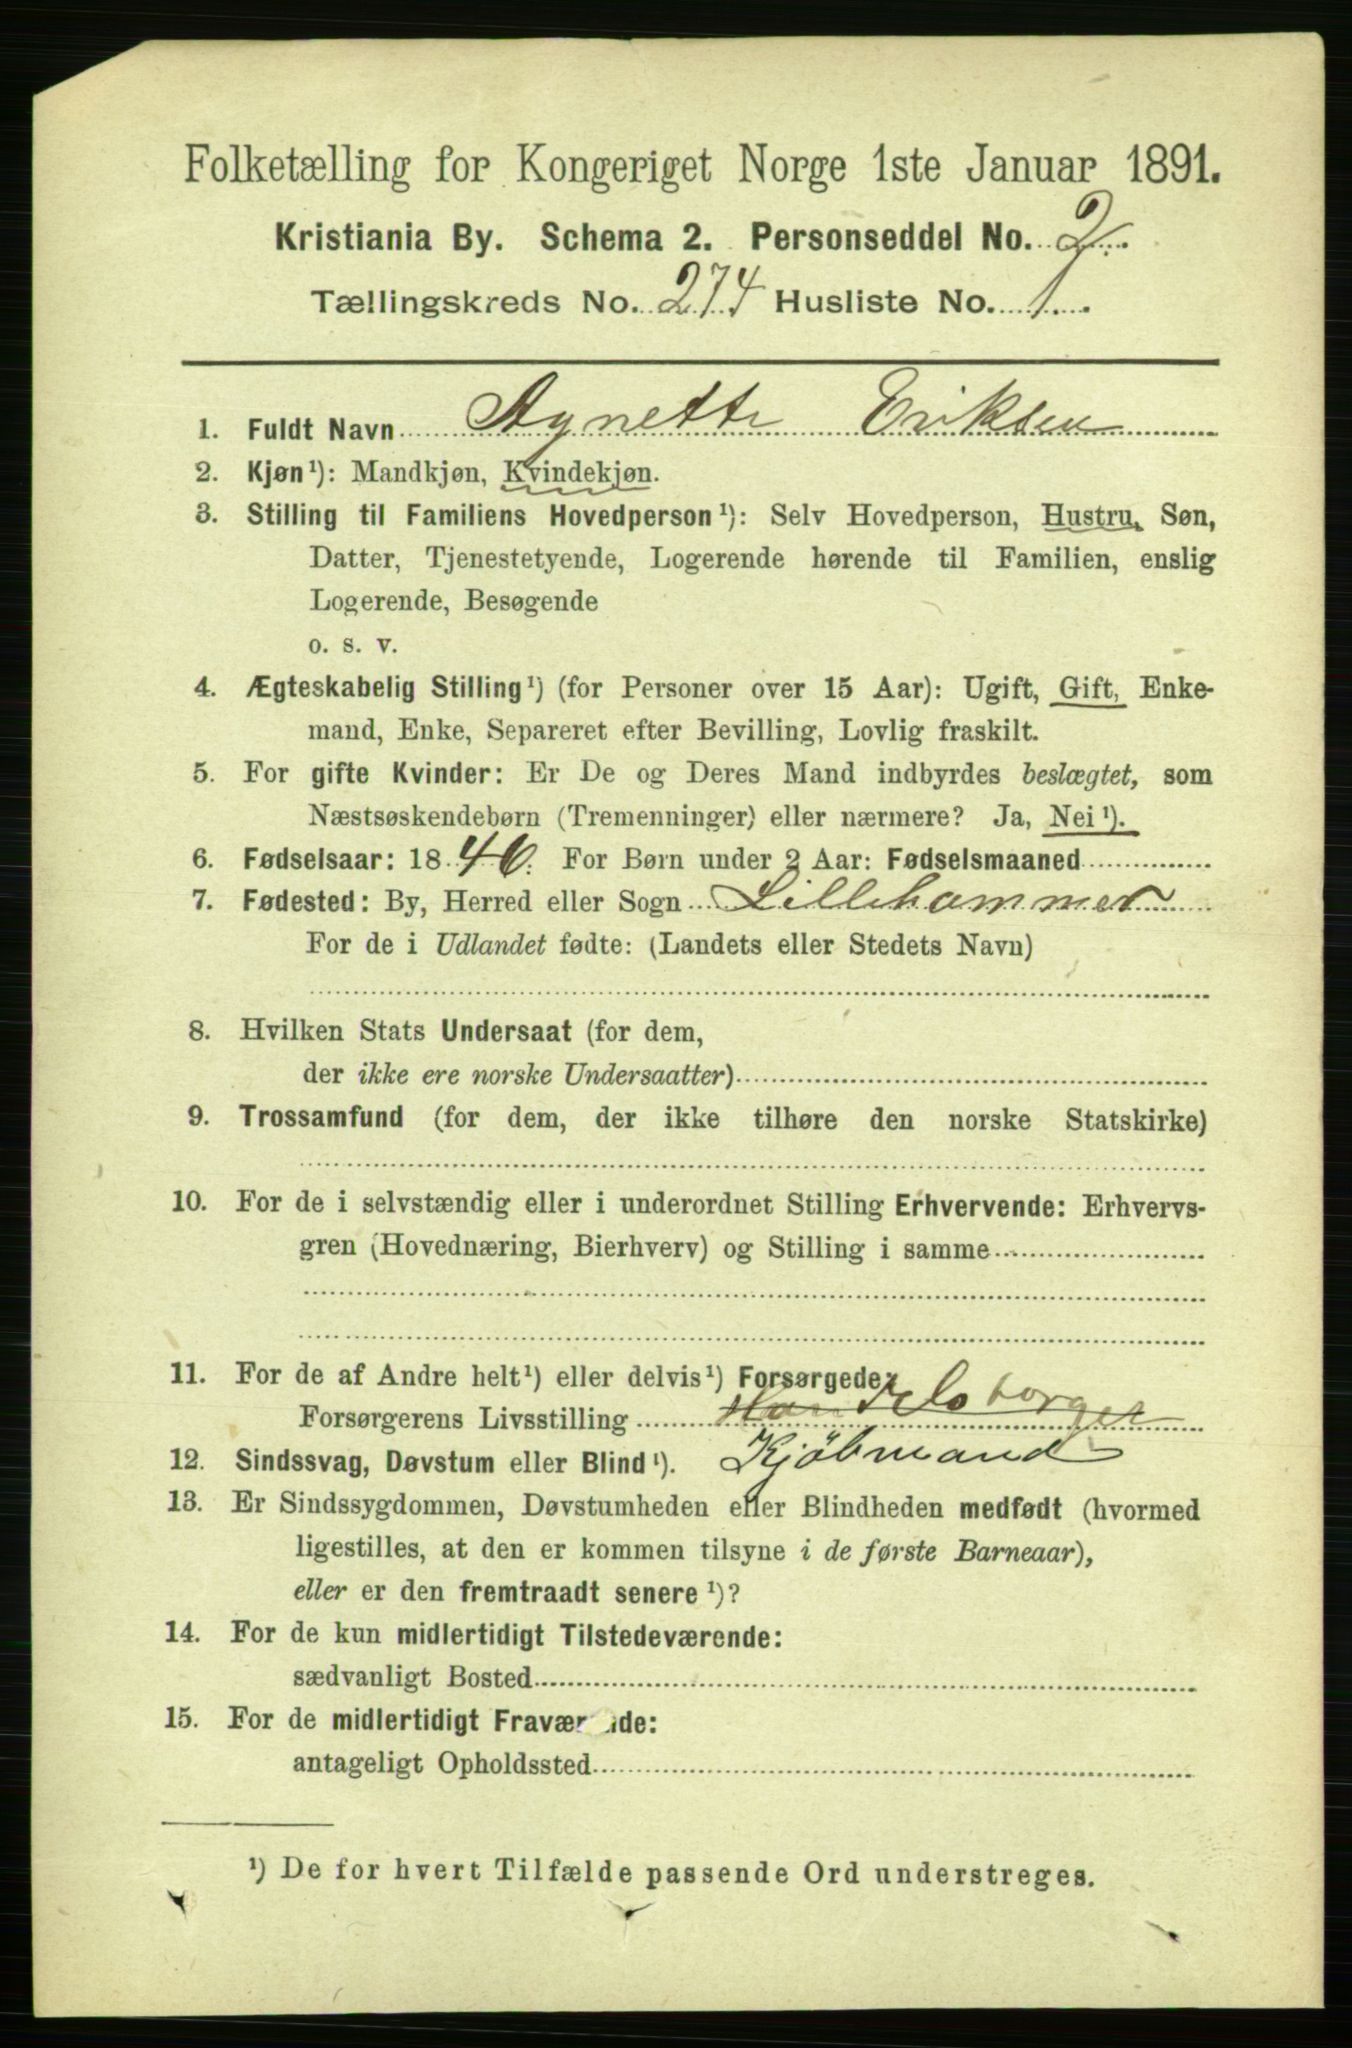 Folketælling for Kongeriget Norge 1ste Januar 1891.
Kristiania By. Schema 2. Personseddel No. 2.
Tællingskreds No. 274 Husliste No. 1.
1. Fuldt Navn Agnette Eriksen
2. Kjøn¹): Mandkjøn, Kvindekjøn.
3. Stilling til Familiens Hovedperson¹): Selv Hovedperson, Hustru, Søn,
Datter, Tjenestetyende, Logerende hørende til Familien, enslig
Logerende, Besøgende
o. s. v.
4. Ægteskabelig Stilling¹) (for Personer over 15 Aar): Ugift, Gift, Enke-
mand, Enke, Separeret efter Bevilling, Lovlig fraskilt.
5. For gifte Kvinder: Er De og Deres Mand indbyrdes beslægtet, som
Næstsøskendebørn (Tremenninger) eller nærmere? Ja, Nei¹).
6. Fødselsaar: 1846. For Børn under 2 Aar: Fødselsmaaned
7. Fødested: By, Herred eller Sogn Lillehammer
For de i Udlandet fødte: (Landets eller Stedets Navn)
8. Hvilken Stats Undersaat (for dem,
der ikke ere norske Undersaatter)
9. Trossamfund (for dem, der ikke tilhøre den norske Statskirke)
10. For de i selvstændig eller i underordnet Stilling Erhvervende: Erhvervs-
gren (Hovednæring, Bierhverv) og Stilling i samme
11. For de af Andre helt¹) eller delvis¹) Forsørgede:
Forsørgerens Livsstilling Handelsborger
12. Sindssvag, Døvstum eller Blind¹). Kjöbmand
13. Er Sindssygdommen, Døvstumheden eller Blindheden medfødt (hvormed
ligestilles, at den er kommen tilsyne i de første Barneaar),
eller er den fremtraadt senere¹)?
14. For de kun midlertidigt Tilstedeværende:
sædvanligt Bosted
15. For de midlertidigt Fraværende:
antageligt Opholdssted
¹) De for hvert Tilfælde passende Ord understreges.